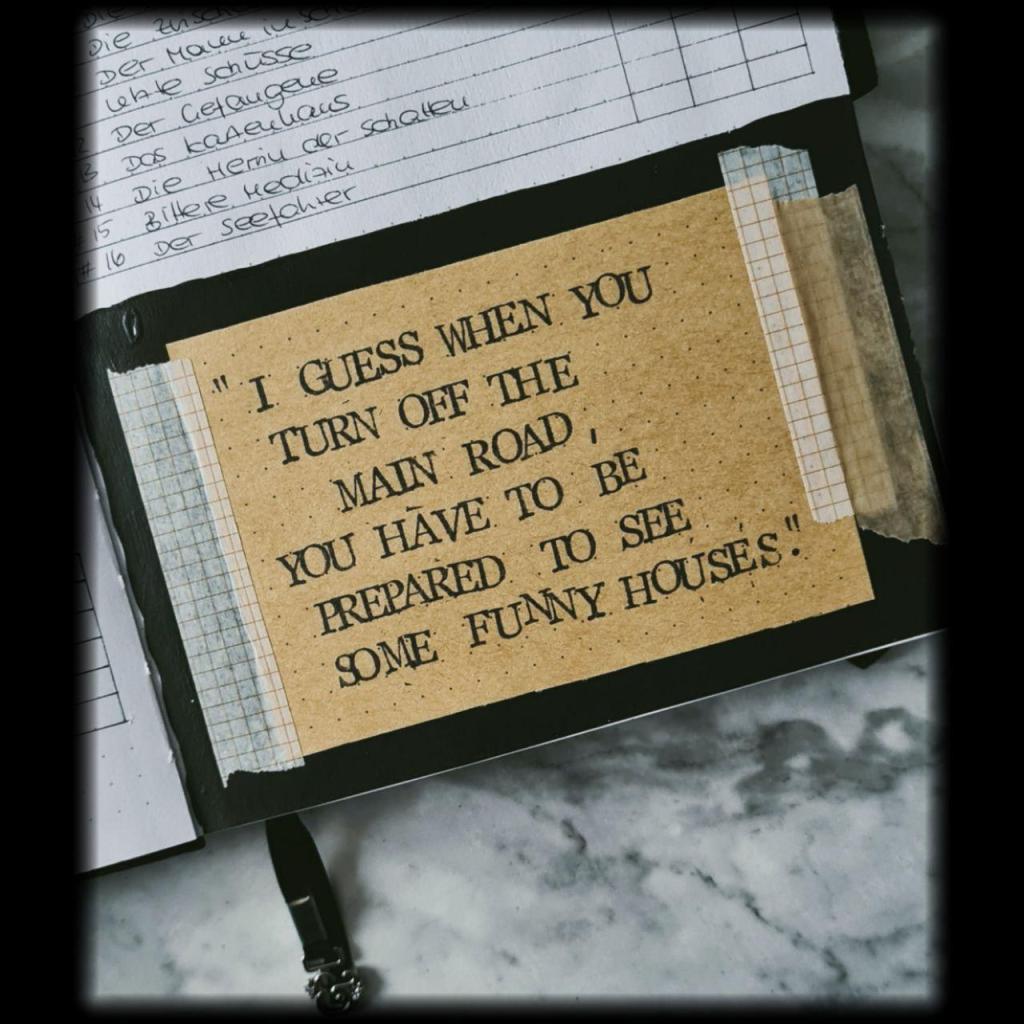 Die
Der Mann im
letzte Schüsse
Der Gefangene
13 Das Kartenhaus
14 Die Herrin der Schatten
#15 Bittere Medizin
#16 Der Seefahrer
" I GUESS WHEN YOU
TURN OFF THE
MAIN ROAD,
YOU HAVE TO BE
PREPARED TO SEE
SOME FUNNY HOUSES".